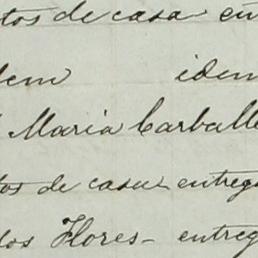 tos de casa en
dem iden
Maria Carballe
tos de casa entrega
dos Flores - entreg